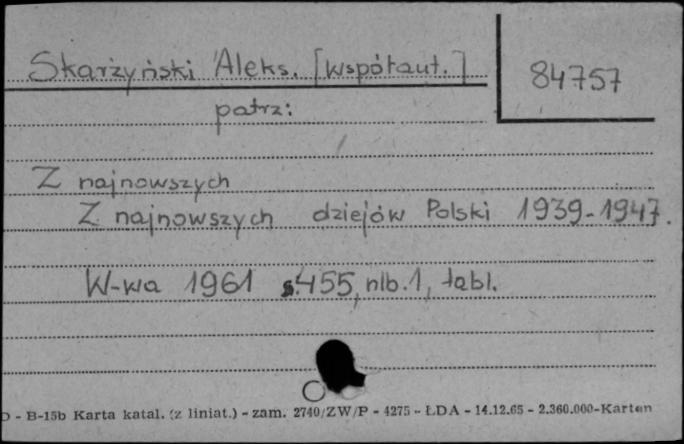 Skarżyński Aleks. [współaut.]
84757
patrz:
Z najnowszych
Z najnowszych dziejów Polski 1939-1947.
W-wa 1961 s.455, nlb.1, tabl.
D - B-15b Karta katal. (z liniat.) - zam. 2740/ZW/P - 4275 - ŁDA - 14.12.65 - 2.360.000-Karten